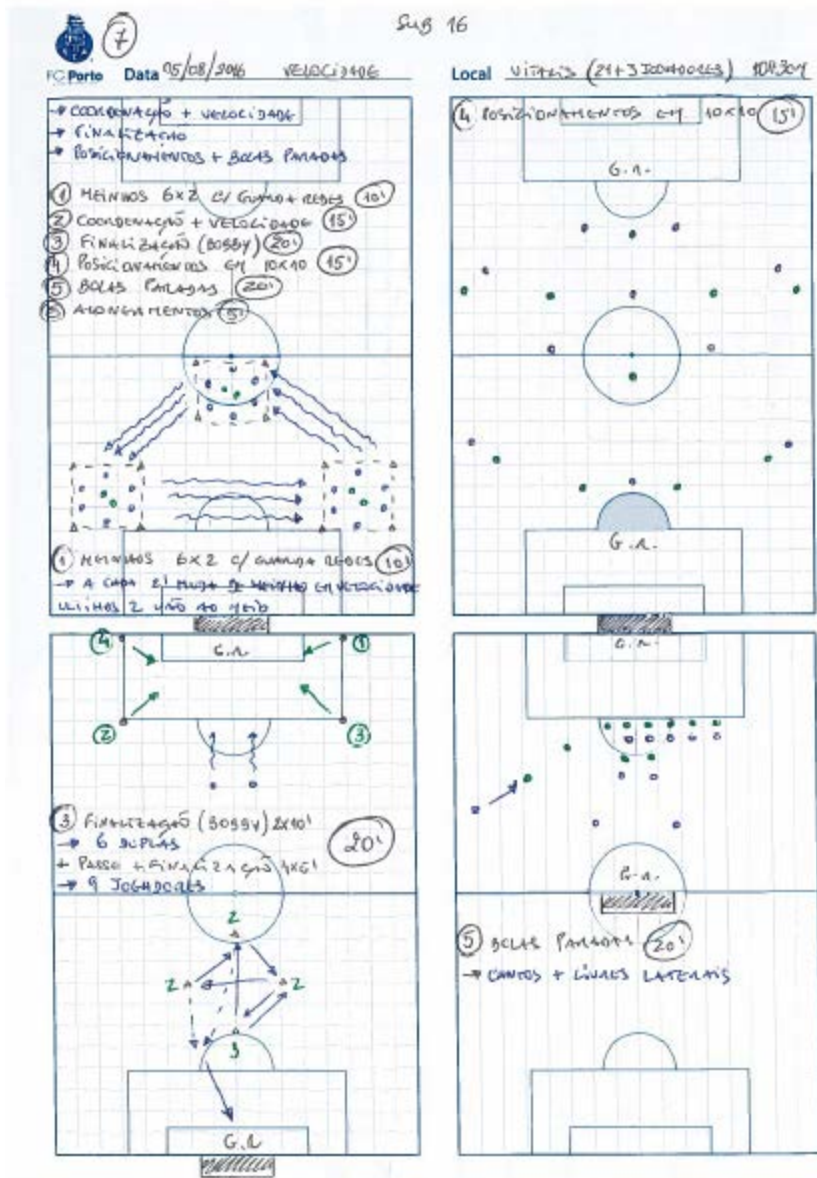 SUB 16
7
FC Porto Data 05/08/2016 VELOCIDADE
Local VITALIS (21+3 JOGADORES) 10H30M
→ COORDENAÇÃO + VELOCIDADE
→ FINALIZAÇÃO
→ POSICIONAMENTOS + BOLAS PARADAS
1 MEINHOS 6X2 C/ GUARDA REDES 10'
2 COORDENAÇÃO + VELOCIDADE 15'
3 FINALIZAÇÃO (BOBBY) 20'
4 POSICIONAMENTOS EM 10X10 15'
5 BOLAS PARADAS 20'
6 ALONGAMENTOS 5'
1 MEINHOS 6X2 C/ GUARDA REDES 10'
→ A CADA 2' MUDA DE MEINHO EM VELOCIDADE
ULTIMOS 2 VÃO AO MEIO
4 POSICIONAMENTOS EM 10X10 15'
G.R.
G.R.
4
G.R.
1
2
3
3 FINALIZAÇÃO (BOBBY) 2X10'
→ 6 DUPLAS
20'
+ PASSE + FINALIZAÇÃO
→ 9 JOGADORES
2
2
2
3
G.R
G.R.
G.R.
5 BOLAS PARADAS 20'
→ CANTOS + LIVRES LATERAIS